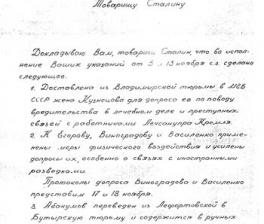 Товарищу Сталину
Докладываю Вам, товарищ Сталин, что во испол-
нение Ваших указаний от 5 и 13 ноября с.г. сделано
следующее:
1. Доставлена из Владимирской тюрьмы в МГБ
СССР жена Кузнецова для допроса ее по поводу
вредительства в лечебном деле и преступных
связей с работниками Лечсанупра Кремля.
2. К Егорову, Виноградову и Василенко примене-
ны меры физического воздействия и усилены
допросы их, особенно о связях с иностранными
разведками.
Протоколы допроса Виноградова и Василенко
представим 17 и 18 ноября.
3. Абакумов переведен из Лефортовской в
Бутырскую тюрьму и содержится в ручных